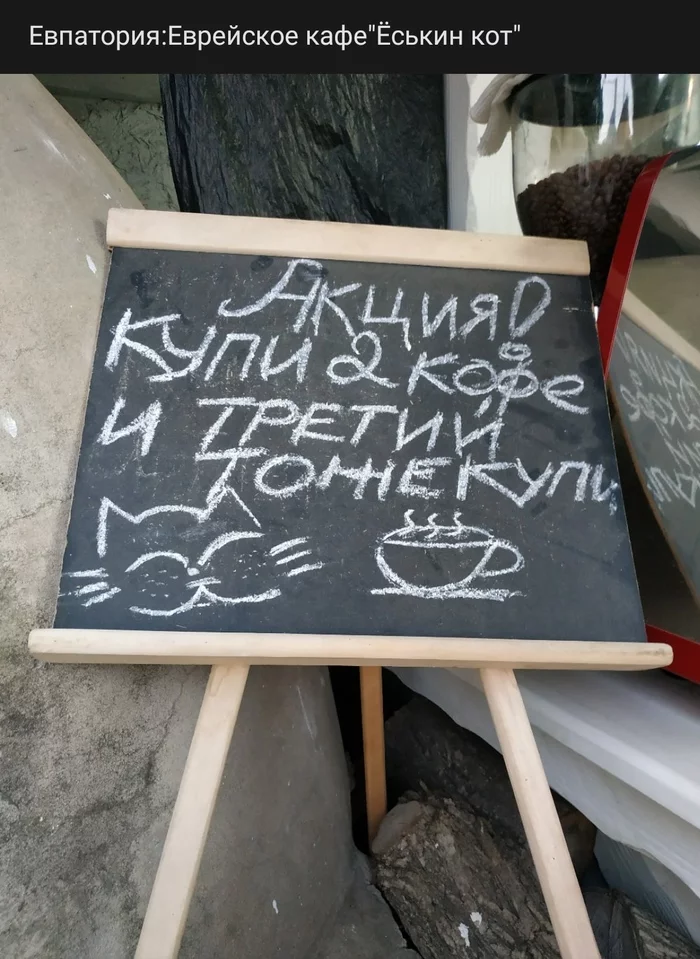 Евпатория:Еврейское кафе"Ёськин кот"
Акция!
КУПИ 2 кофе
И ТРЕТИЙ
ТОЖЕ КУПИ